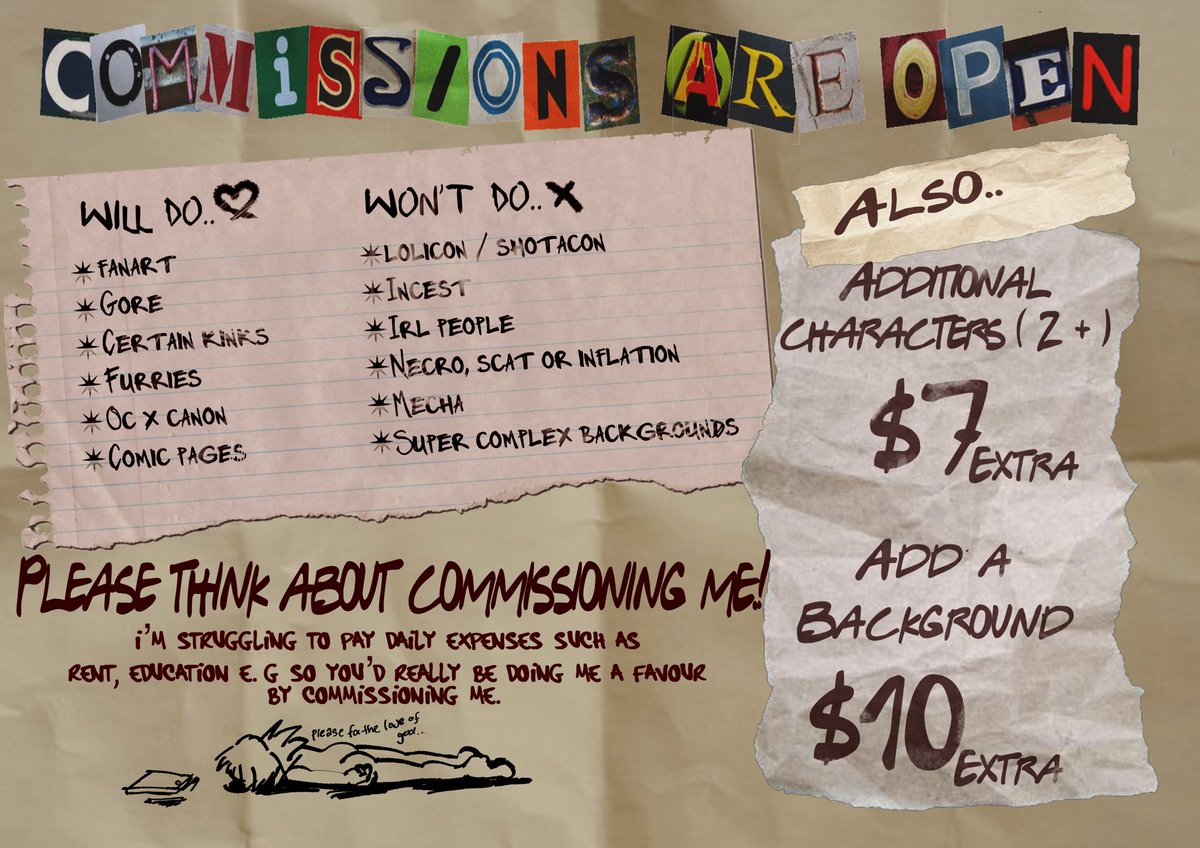 COMMISSIONS ARE OPEN
WILL DO..
FANART
GORE
CERTAIN KINKS
FURRIES
OC X CANON
COMIC PAGES
WON'T DO..
LOLICON / SHOTACON
INCEST
IRL PEOPLE
NECRO, SCAT OR INFLATION
MECHA
SUPER COMPLEX BACKGROUNDS
ALSO..
ADDITIONAL
CHARACTERS ( 2 + )
$7 EXTRA
ADD A
BACKGROUND
$10 EXTRA
PLEASE THINK ABOUT COMMISSIONING ME!!
I'M STRUGGLING TO PAY DAILY EXPENSES SUCH AS
RENT, EDUCATION E. G SO YOU'D REALLY BE DOING ME A FAVOUR
BY COMMISSIONING ME.
please for the love of
god...